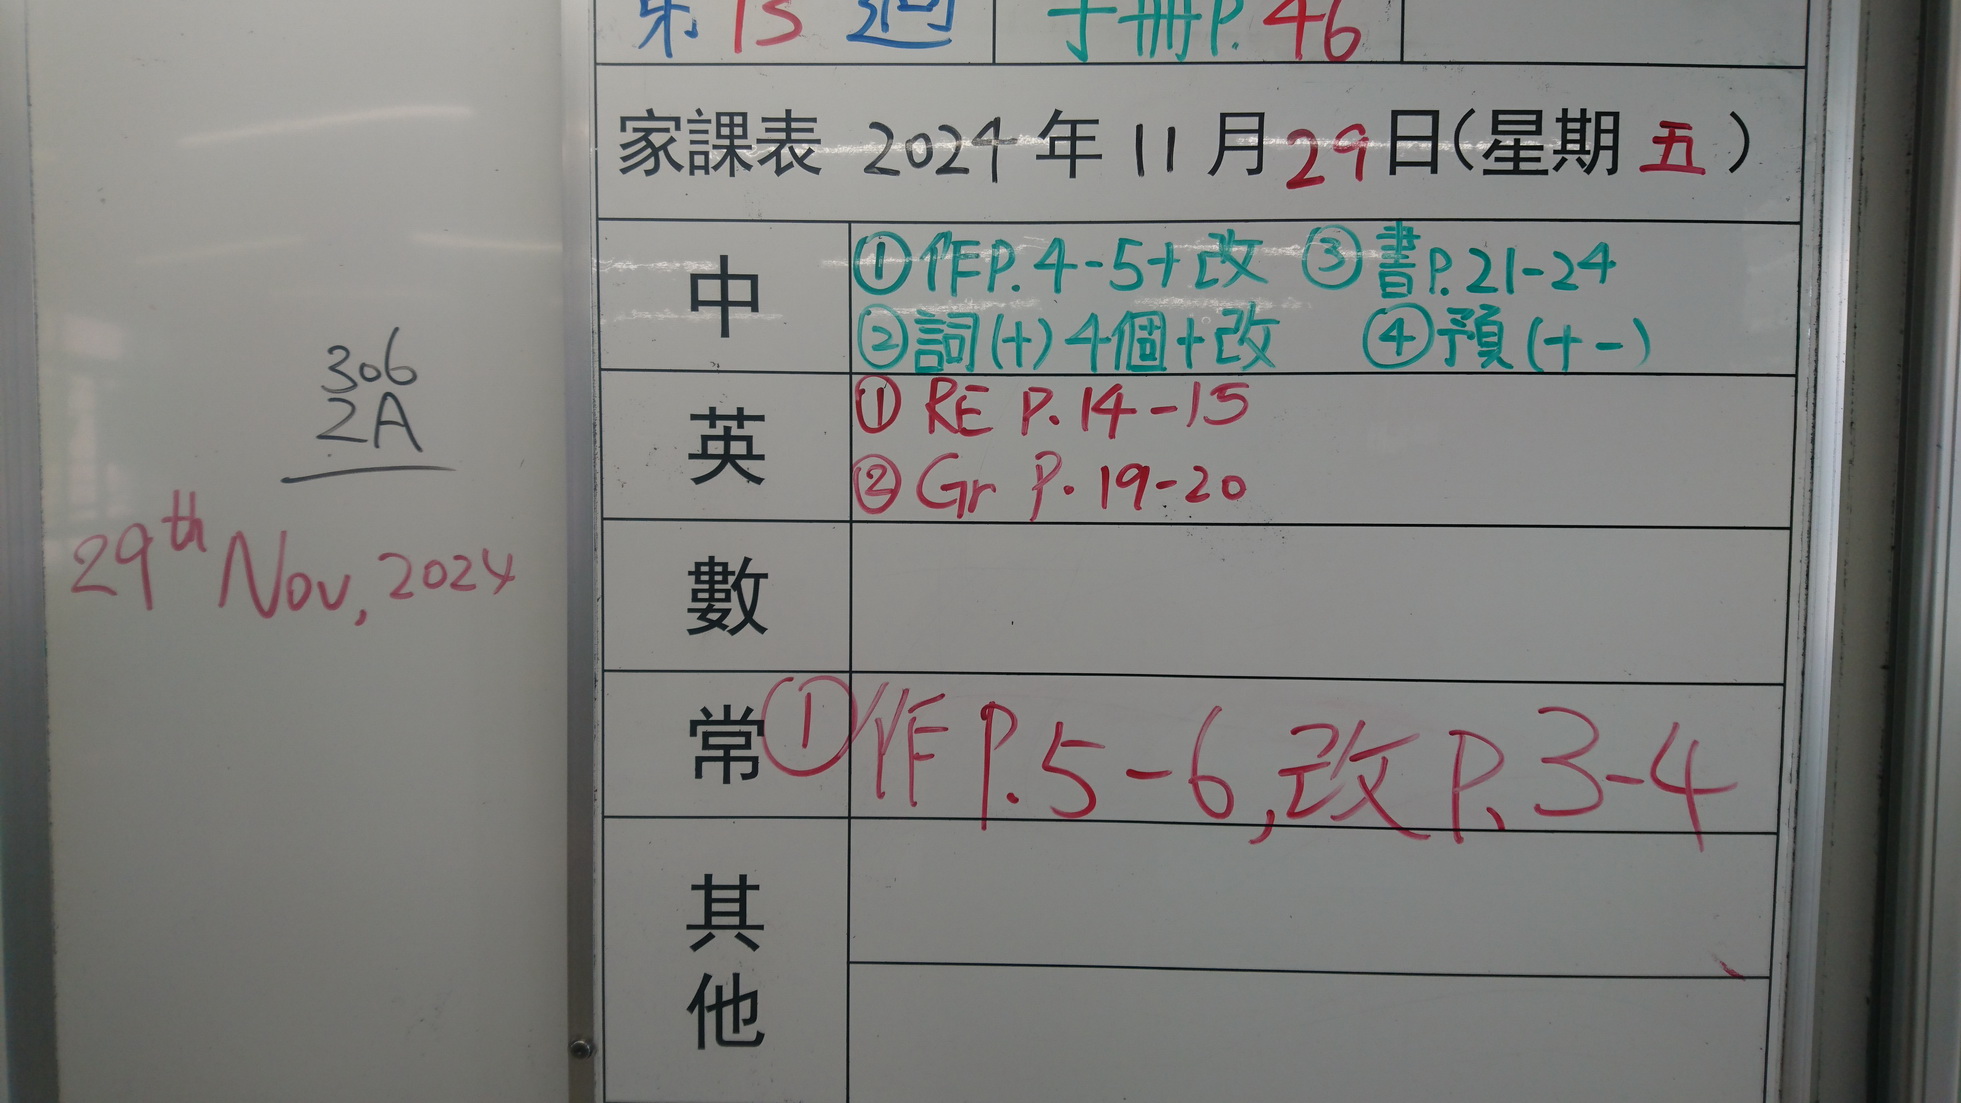 第 13 週 手冊P. 46
家課表 2024 年 11 月 29 日(星期 五 )
中 ①作P. 4-5+改 ③書P.21-24
②詞(+)4個+改 ④預(十一)
英 ① RE P.14-15
② Gr P. 19-20
數
常 ①作P.5-6,改P.3-4
其
他
306
2A
29th Nov, 2024